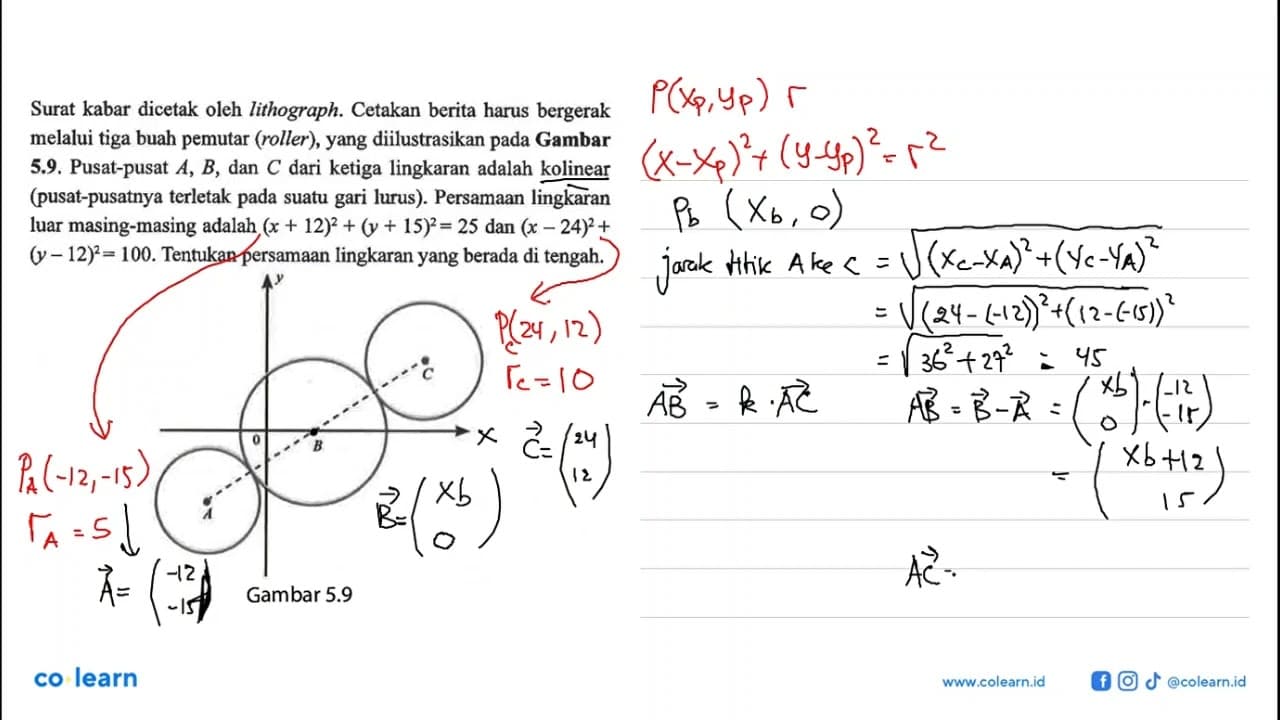 Surat kabar dicetak oleh lithograph. Cetakan berita harus bergerak
melalui tiga buah pemutar (roller), yang diilustrasikan pada Gambar
5.9. Pusat-pusat A, B, dan C dari ketiga lingkaran adalah kolinear
(pusat-pusatnya terletak pada suatu gari lurus). Persamaan lingkaran
luar masing-masing adalah (x + 12)² + (y + 15)² = 25 dan (x – 24)² +
(y – 12)² = 100. Tentukan persamaan lingkaran yang berada di tengah.
y
C
0
B
x
A
Gambar 5.9
P_C(24, 12)
r_C = 10
P_A(-12, -15)
r_A = 5
A⃗ = (-12
-15)
B⃗ = (xb
0)
C⃗ = (24
12)
P(xp, yp) r
(x-xp)² + (y-yp)² = r²
Pb (xb, 0)
jarak titik A ke C = √(xC-xA)² + (yC-yA)²
= √(24-(-12))² + (12-(-15))²
= √36² + 27² = 45
AB⃗ = k · AC⃗
AB⃗ = B⃗ - A⃗ = (xb
0) - (-12
-15)
= (xb+12
15)
AC⃗ -
co learn
www.colearn.id
@colearn.id